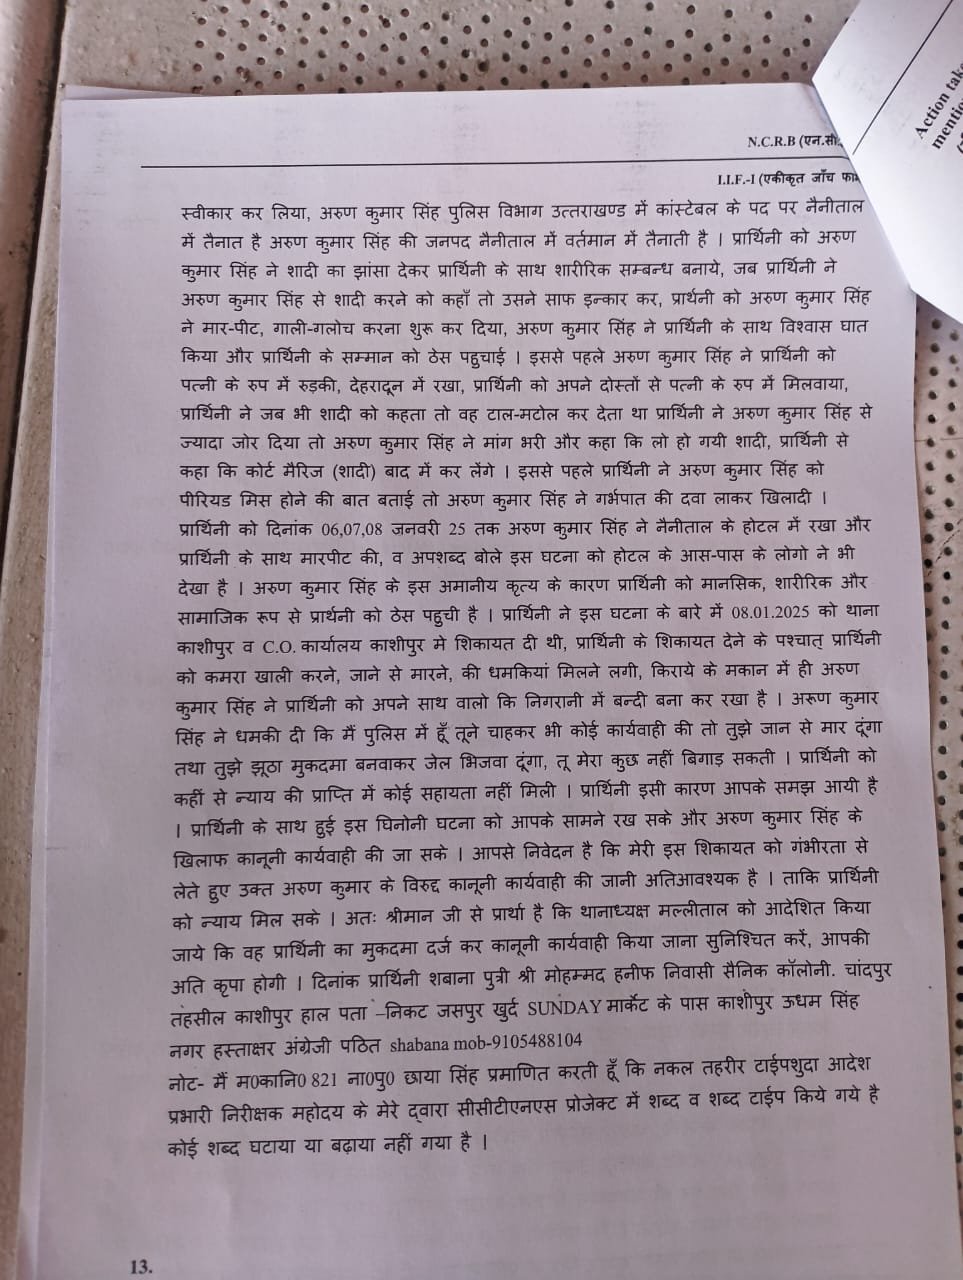 Action
N.C.R.B (एन.सी
I.I.F.-I (एकीकृत जाँच
स्वीकार कर लिया, अरुण कुमार सिंह पुलिस विभाग उत्तराखण्ड में कांस्टेबल के पद पर नैनीताल
में तैनात है अरुण कुमार सिंह की जनपद नैनीताल में वर्तमान में तैनाती है । प्रार्थिनी को अरुण
कुमार सिंह ने शादी का झांसा देकर प्रार्थिनी के साथ शारीरिक सम्बन्ध बनाये, जब प्रार्थिनी ने
अरुण कुमार सिंह से शादी करने को कहाँ तो उसने साफ इन्कार कर, प्रार्थनी को अरुण कुमार सिंह
ने मार-पीट, गाली-गलोच करना शुरू कर दिया, अरुण कुमार सिंह ने प्रार्थिनी के साथ विश्वास घात
किया और प्रार्थिनी के सम्मान को ठेस पहुचाई । इससे पहले अरुण कुमार सिंह ने प्रार्थिनी को
पत्नी के रुप में रुड़की, देहरादून में रखा, प्रार्थिनी को अपने दोस्तों से पत्नी के रुप में मिलवाया,
प्रार्थिनी ने जब भी शादी को कहता तो वह टाल-मटोल कर देता था प्रार्थिनी ने अरुण कुमार सिंह से
ज्यादा जोर दिया तो अरुण कुमार सिंह ने मांग भरी और कहा कि लो हो गयी शादी, प्रार्थिनी से
कहा कि कोर्ट मैरिज (शादी) बाद में कर लेंगे । इससे पहले प्रार्थिनी ने अरुण कुमार सिंह को
पीरियड मिस होने की बात बताई तो अरुण कुमार सिंह ने गर्भपात की दवा लाकर खिलादी ।
प्रार्थिनी को दिनांक 06,07,08 जनवरी 25 तक अरुण कुमार सिंह ने नैनीताल के होटल में रखा और
प्रार्थिनी के साथ मारपीट की, व अपशब्द बोले इस घटना को होटल के आस-पास के लोगो ने भी
देखा है । अरुण कुमार सिंह के इस अमानीय कृत्य के कारण प्रार्थिनी को मानसिक, शारीरिक और
सामाजिक रूप से प्रार्थनी को ठेस पहुची है । प्रार्थिनी ने इस घटना के बारे में 08.01.2025 को थाना
काशीपुर व C.O. कार्यालय काशीपुर मे शिकायत दी थी, प्रार्थिनी के शिकायत देने के पश्चात् प्रार्थिनी
को कमरा खाली करने, जाने से मारने, की धमकियां मिलने लगी, किराये के मकान में ही अरुण
कुमार सिंह ने प्रार्थिनी को अपने साथ वालो कि निगरानी में बन्दी बना कर रखा है । अरूण कुमार
सिंह ने धमकी दी कि मैं पुलिस में हूँ तूने चाहकर भी कोई कार्यवाही की तो तुझे जान से मार दूंगा
तथा तुझे झूठा मुकदमा बनवाकर जेल भिजवा दूंगा, तू मेरा कुछ नहीं बिगाड़ सकती । प्रार्थिनी को
कहीं से न्याय की प्राप्ति में कोई सहायता नहीं मिली । प्रार्थिनी इसी कारण आपके समझ आयी है
। प्रार्थिनी के साथ हुई इस घिनोनी घटना को आपके सामने रख सके और अरुण कुमार सिंह के
खिलाफ कानूनी कार्यवाही की जा सके । आपसे निवेदन है कि मेरी इस शिकायत को गंभीरता से
लेते हुए उक्त अरुण कुमार के विरुद्द कानूनी कार्यवाही की जानी अतिआवश्यक है । ताकि प्रार्थिनी
को न्याय मिल सके । अतः श्रीमान जी से प्रार्था है कि थानाध्यक्ष मल्लीताल को आदेशित किया
जाये कि वह प्रार्थिनी का मुकदमा दर्ज कर कानूनी कार्यवाही किया जाना सुनिश्चित करें, आपकी
अति कृपा होगी । दिनांक प्रार्थिनी शबाना पुत्री श्री मोहम्मद हनीफ निवासी सैनिक कॉलोनी. चांदपुर
तहसील काशीपुर हाल पता –निकट जसपुर खुर्द SUNDAY मार्केट के पास काशीपुर ऊधम सिंह
नगर हस्ताक्षर अंग्रेजी पठित shabana mob-9105488104
नोट- मैं म0कानि0 821 ना0पु0 छाया सिंह प्रमाणित करती हूँ कि नकल तहरीर टाईपशुदा आदेश
प्रभारी निरीक्षक महोदय के मेरे द्वारा सीसीटीएनएस प्रोजेक्ट में शब्द व शब्द टाईप किये गये है
कोई शब्द घटाया या बढ़ाया नहीं गया है ।
13.